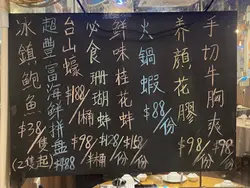 手切牛胸爽 $98/份
養顏花膠 $98/份
火鍋蝦 $88/份
鮮味桂花蚌 $158/份
必食珊瑚蚌 $128/份
台山蠔 $88/半桶 $98/桶
超豐富海鮮拼盤 $488
冰鎮鮑魚 $38/隻 (2隻起)